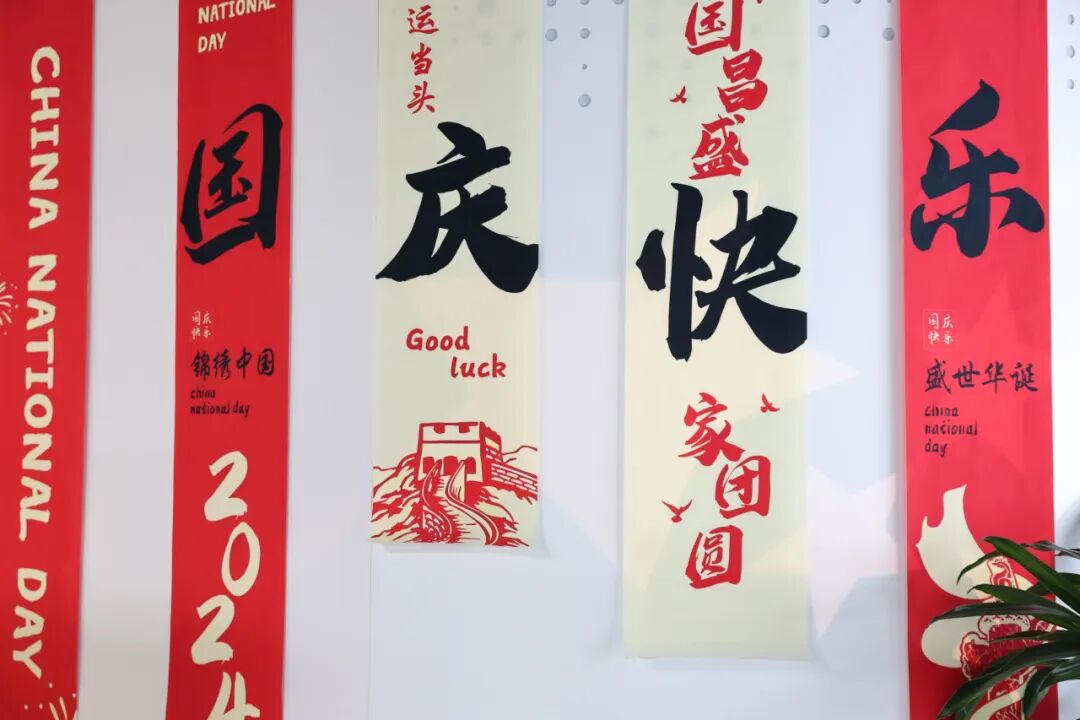 CHINA NATIONAL DAY
NATIONAL
DAY
国
国庆
快乐
锦绣中国
china
national day
2024
运当头
庆
Good
luck
国昌盛
快
家团圆
乐
国庆
快乐
盛世华诞
china
national
day